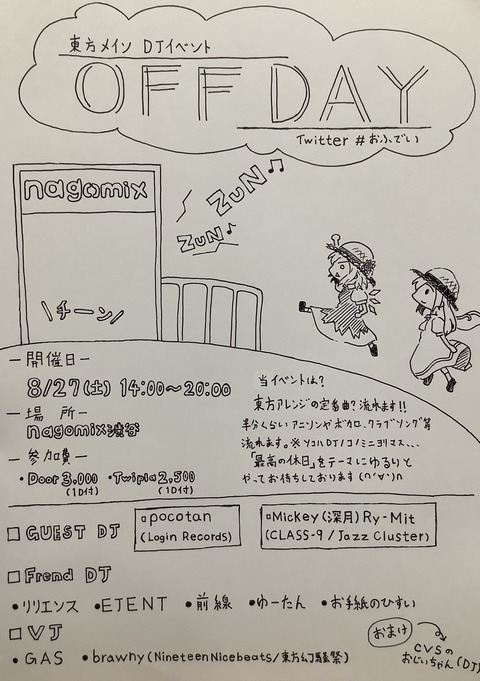 東方メイン DJイベント
OFF DAY
Twitter #おふでい
nagomix
ZUN♫
ZUN♪
\チーン/
ー開催日ー
8/27(土) 14:00〜20:00
ー場 所ー
nagomix渋谷
ー参加費ー
・Door3,000 ・Twipla2,500
(1D付) (1D付)
当イベントは?
東方アレンジの定番曲?流れます!!
半分くらいアニソンやボカロ、クラブソング等
流れます。※ソコハDTノコノミニヨリマス...
「最高の休日」をテーマにゆるりと
やってお待ちしております(∩'∀')∩
□GUEST DJ
▫pocotan
(Login Records)
▫Mickey(深月)Ry-Mit
(CLASS-9/Jazz Cluster)
□Frend DJ
•リリエンス •EJENT •前線 •ゆーたん •お手紙のひすい
□VJ
•GAS •brawhy(NineteenNicebeats/東方幻騒祭)
おまけ
CVSの
おじいちゃん(DJ)